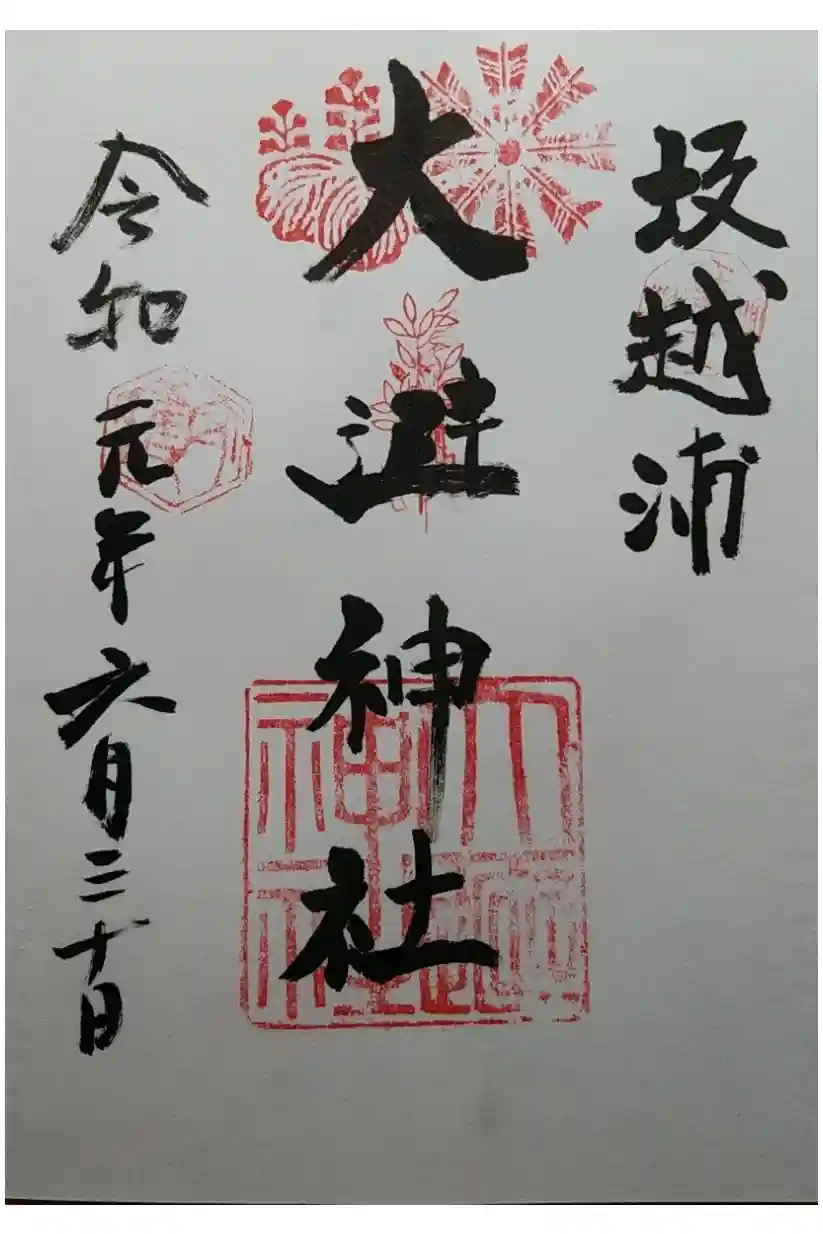 坂越浦
大避神社
令和元年六月三十日
大避神社